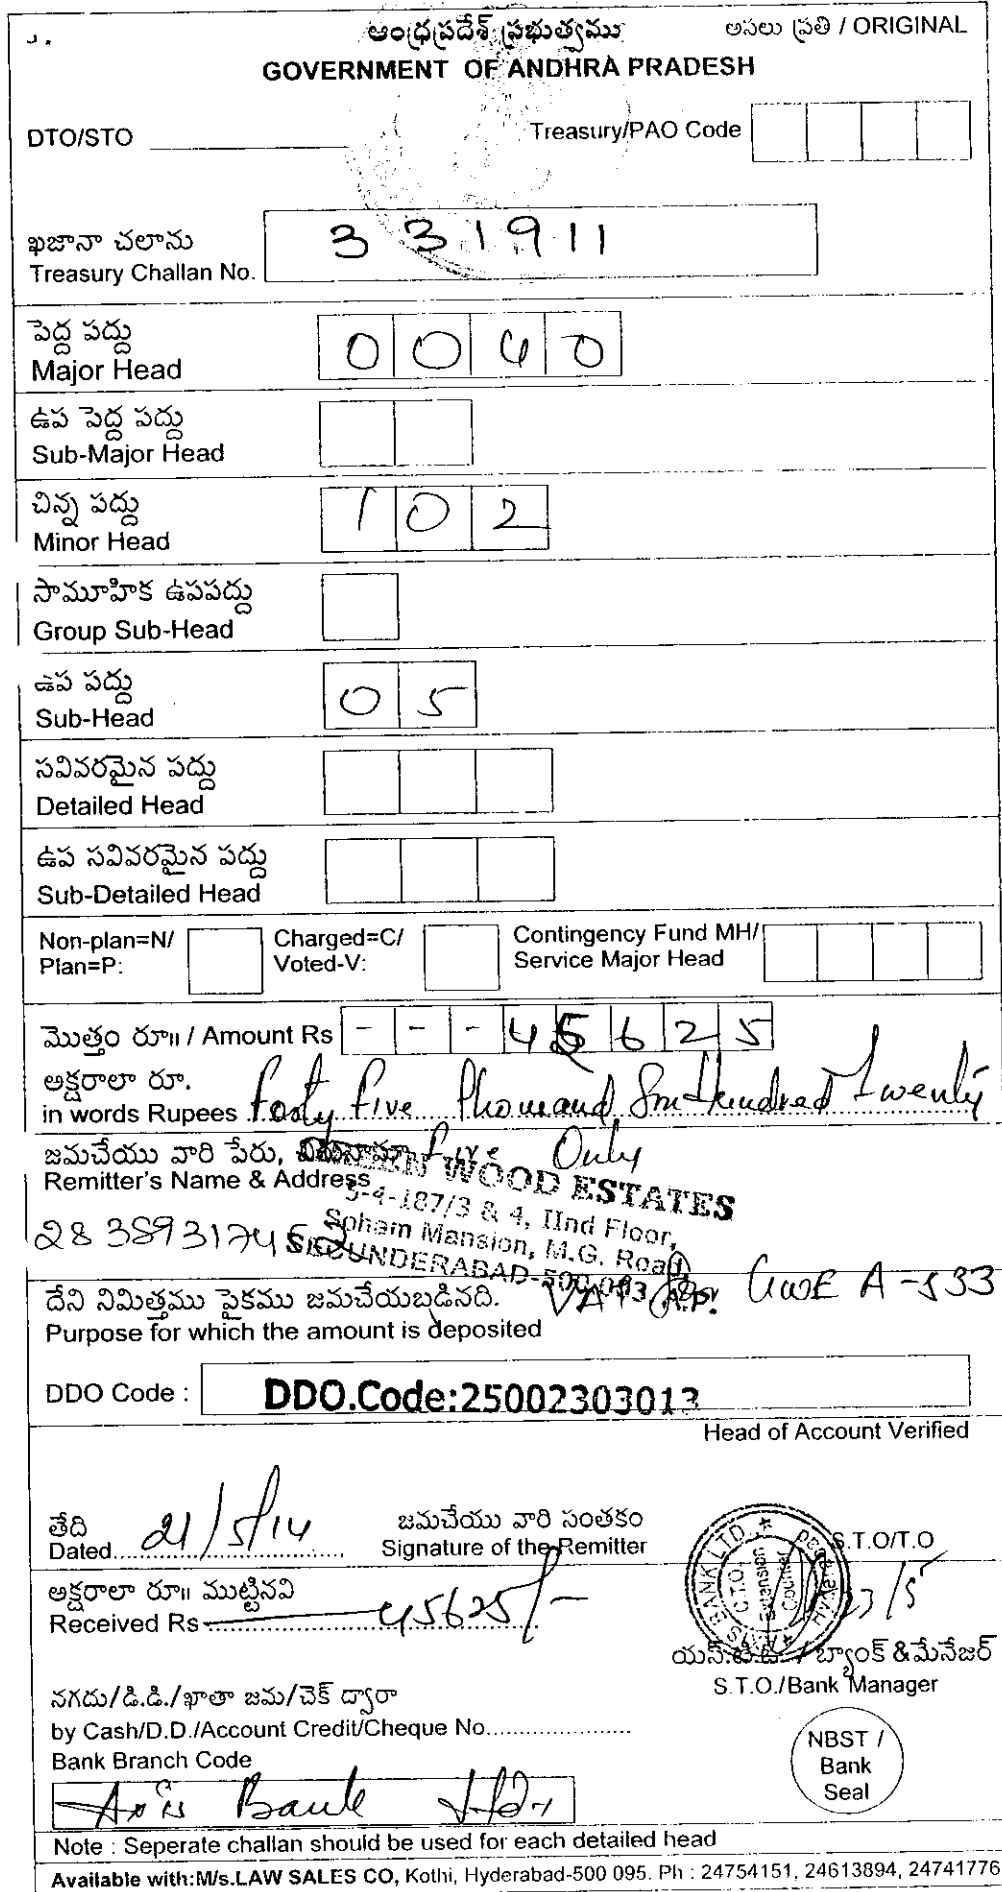 ఆంధ్రప్రదేశ్ ప్రభుత్వము
అసలు ప్రతి / ORIGINAL
GOVERNMENT OF ANDHRA PRADESH
DTO/STO
Treasury/PAO Code
ఖజానా చలాను
Treasury Challan No. 331911
పెద్ద పద్దు
Major Head 0040
ఉప పెద్ద పద్దు
Sub-Major Head
చిన్న పద్దు
Minor Head 102
సామూహిక ఉపపద్దు
Group Sub-Head
ఉప పద్దు
Sub-Head 05
సవివరమైన పద్దు
Detailed Head
ఉప సవివరమైన పద్దు
Sub-Detailed Head
Non-plan=N/ Charged=C/ Contingency Fund MH/
Plan=P: Voted-V: Service Major Head
మొత్తం రూ॥ / Amount Rs - - - 45625
అక్షరాలా రూ.
in words Rupees Forty Five Thousand Six Hundred Twenty
Five Only
జమచేయు వారి పేరు,
Remitter's Name & Address
GREEN WOOD ESTATES
5-4-187/3 & 4, IInd Floor,
Soham Mansion, M.G. Road,
SECUNDERABAD-500 003. A.P.
దేని నిమిత్తము పైకము జమచేయబడినది. VAT GWE A-533
Purpose for which the amount is deposited
DDO Code : DDO.Code:25002303013
Head of Account Verified
తేది జమచేయు వారి సంతకం
Dated 21/5/14 Signature of the Remitter S.T.O/T.O
అక్షరాలా రూ॥ ముట్టినవి
Received Rs 45625/- 23/5
AXIS BANK LTD.
C.T.O.
యస్.టి.ఓ. / బ్యాంక్ &మేనేజర్
S.T.O./Bank Manager
నగదు/డి.డి./ఖాతా జమ/చెక్ ద్వారా
by Cash/D.D./Account Credit/Cheque No.
Bank Branch Code
NBST /
Bank
Seal
Axis Bank Ltd.
Note : Seperate challan should be used for each detailed head
Available with:M/s.LAW SALES CO, Kothi, Hyderabad-500 095. Ph : 24754151, 24613894, 24741776